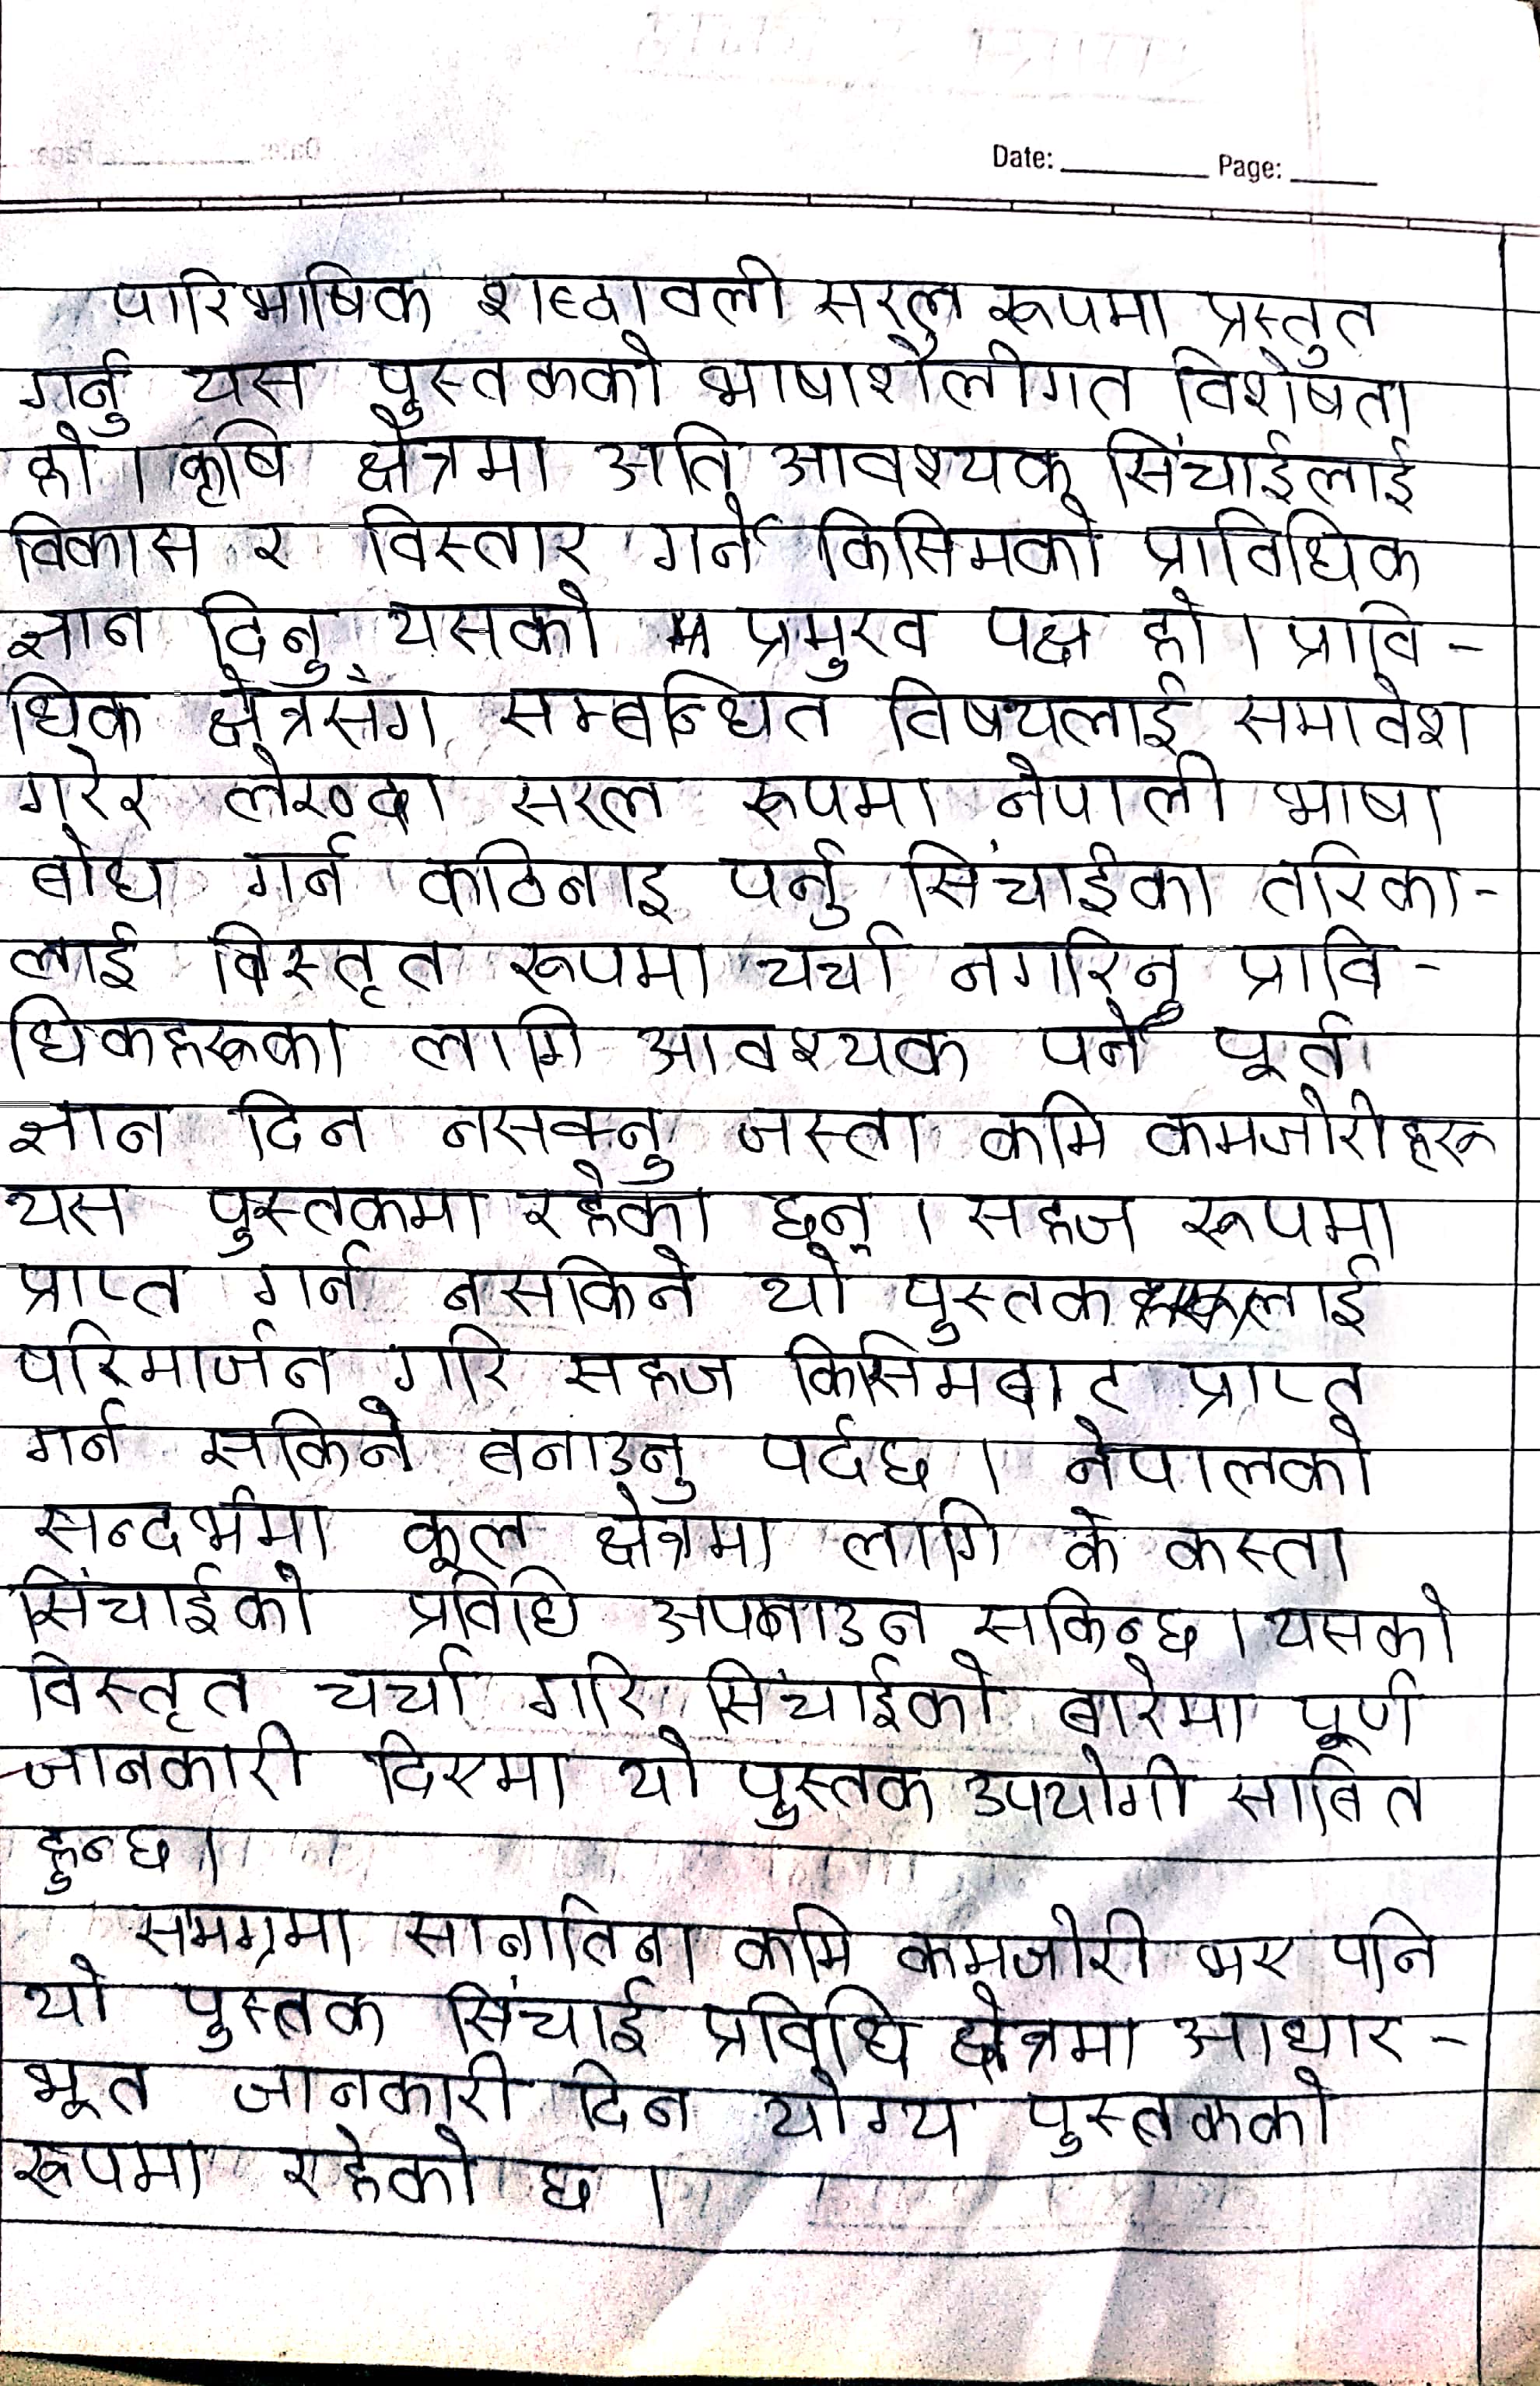 Date: ________ Page: _____
पारिभाषिक शब्दावली सरल रूपमा प्रस्तुत
गर्नु यस पुस्तकको भाषाशैलीगत विशेषता
हो । कृषि क्षेत्रमा अति आवश्यक सिंचाईलाई
विकास र विस्तार गर्ने किसिमको प्राविधिक
ज्ञान दिनु यसको प्रमुख पक्ष हो । प्रावि-
धिक क्षेत्रसँग सम्बन्धित विषयलाई समावेश
गरेर लेख्दा सरल रूपमा नेपाली भाषा
बोध गर्न कठिनाइ पर्नु सिंचाईका तरिका-
लाई विस्तृत रूपमा चर्चा नगरिनु प्रावि-
धिकहरूका लागि आवश्यक पर्ने पूर्व
ज्ञान दिन नसक्नु जस्ता कमि कमजोरीहरू
यस पुस्तकमा रहेका छन् । सहज रूपमा
प्राप्त गर्न नसकिने यो पुस्तकलाई
परिमार्जन गरि सहज किसिमबाट प्राप्त
गर्न सकिने बनाउनु पर्दछ । नेपालको
सन्दर्भमा कूल क्षेत्रमा लागि के कस्ता
सिंचाईको प्रविधि अपनाउन सकिन्छ । यसको
विस्तृत चर्चा गरि सिंचाईको बारेमा पूर्ण
जानकारी दिएमा यो पुस्तक उपयोगी साबित
हुन्छ ।
समग्रमा सानातिना कमि कमजोरी भए पनि
यो पुस्तक सिंचाई प्रविधि क्षेत्रमा आधार-
भूत जानकारी दिन योग्य पुस्तकको
रूपमा रहेको छ ।